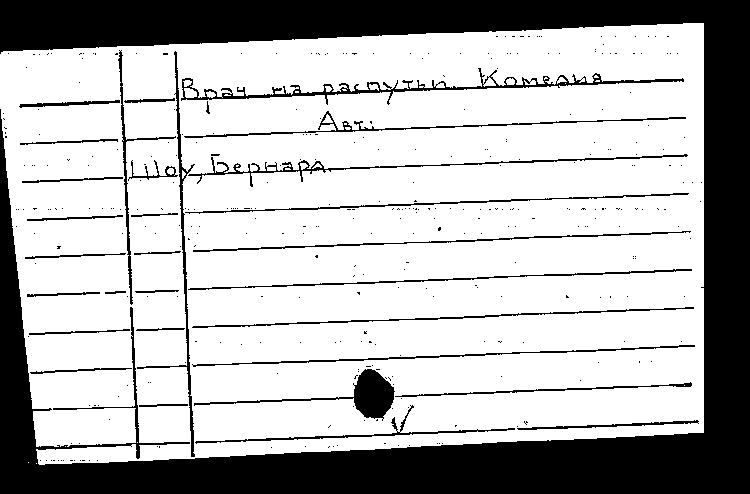 Врач на распутьи. Комедия
Авт.:
Шоу, Бернард.